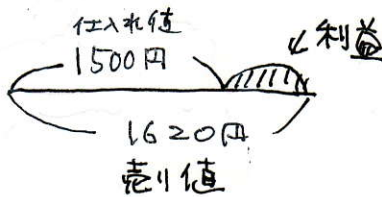 仕入れ値
1500円
利益
1620円
売り値